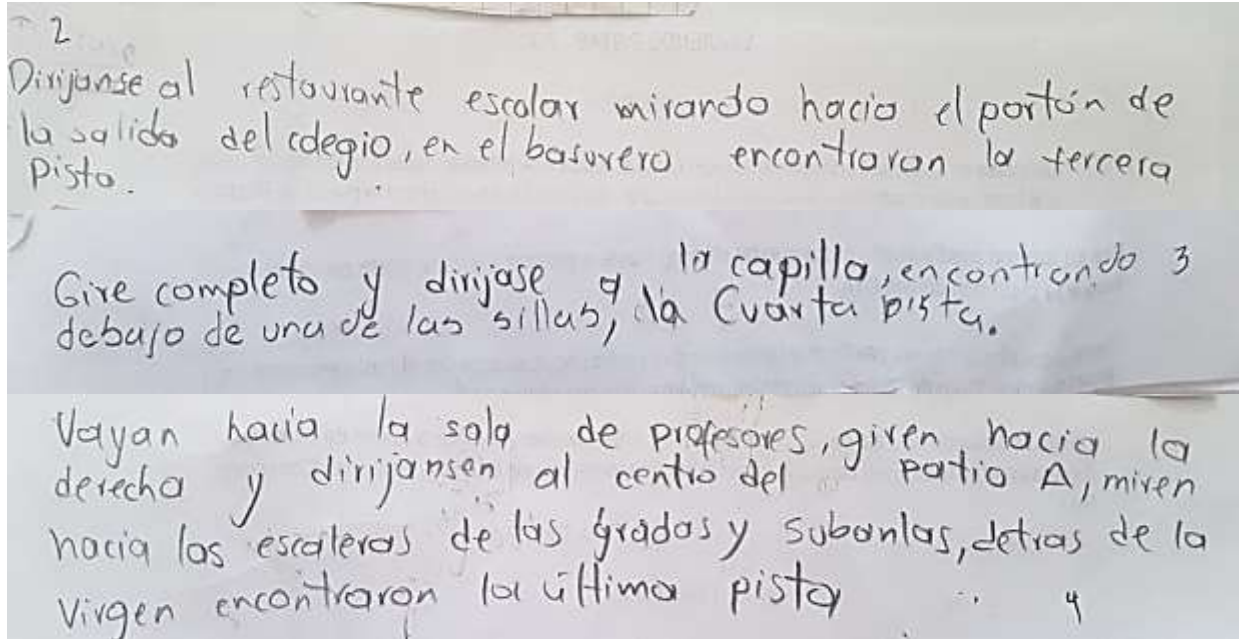 2
Dirijanse al restaurante escolar mirando hacia el portón de
la salida del colegio, en el basurero encontraran la tercera
Pista.
Gire completo y dirijase a la capilla, encontrando 3
debajo de una de las sillas, la Cuarta pista.
Vayan hacia la sala de profesores, giren hacia la
derecha y dirijansen al centro del patio A, miren
hacia las escaleras de las gradas y subanlas, detras de la
Virgen encontraron la última pista
4